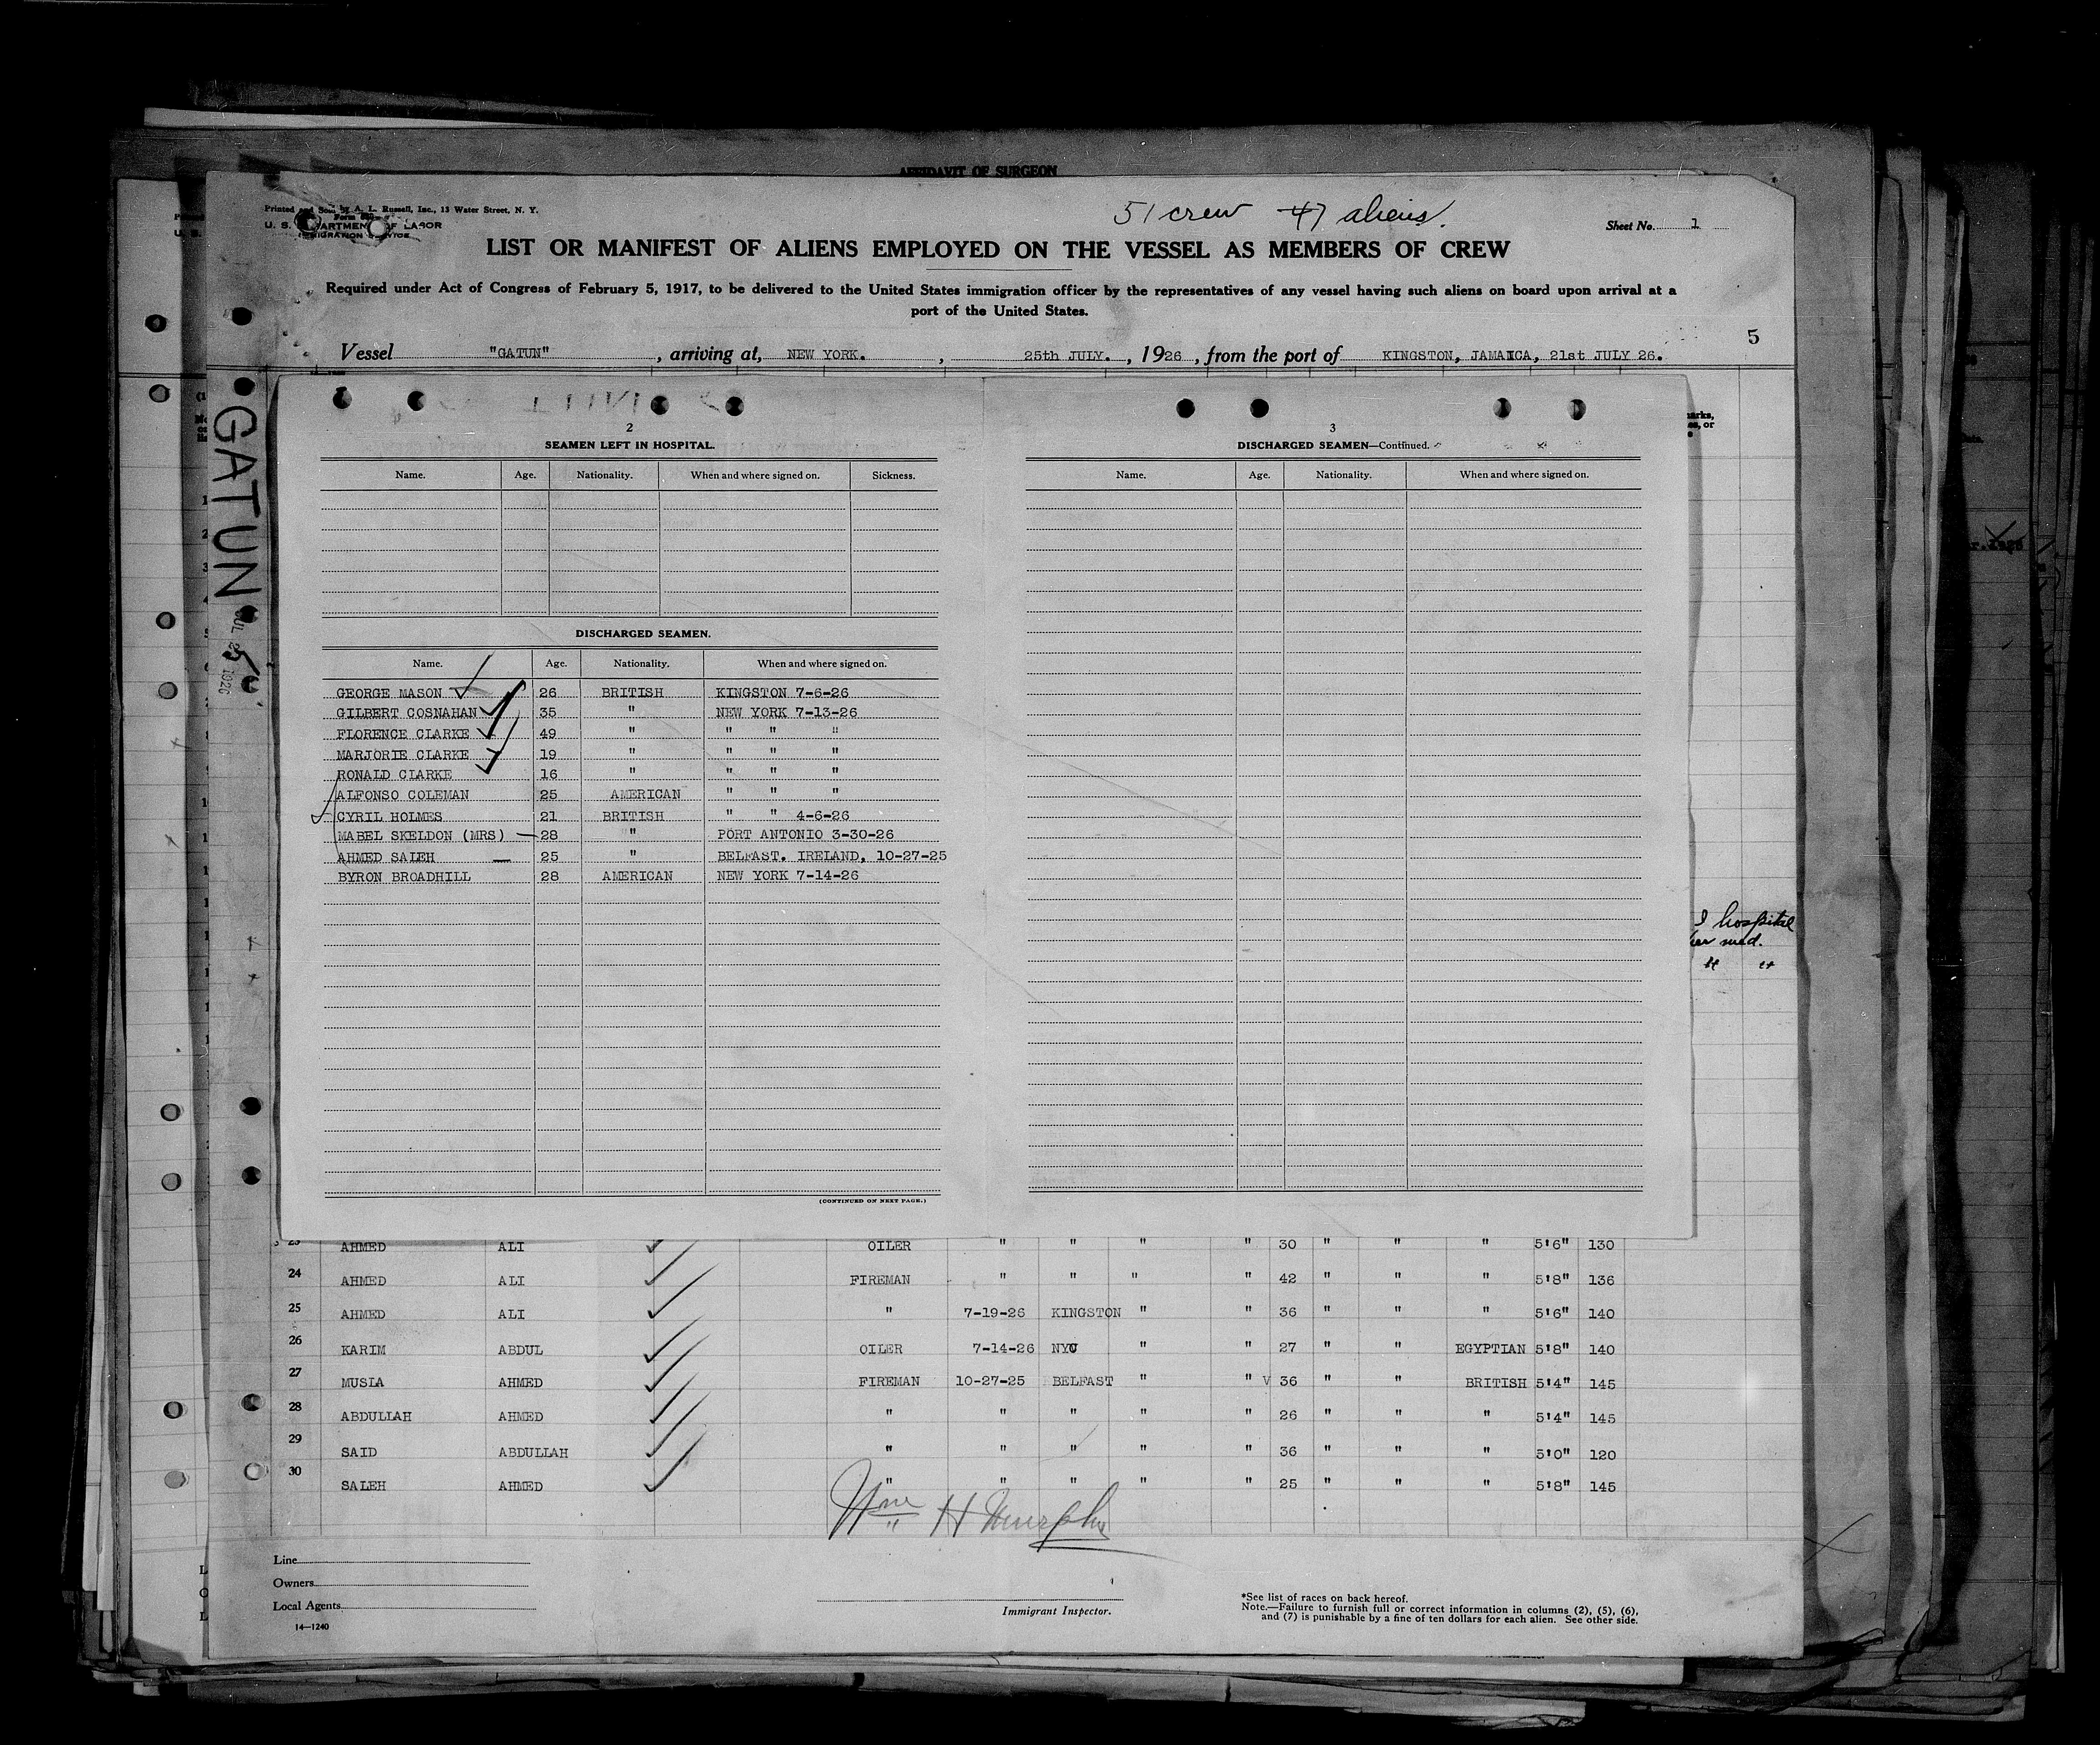 AFFIDAVIT OF SURGEON
Printed and Sold by A. L. Russell, Inc., 13 Water Street, N. Y.
U. S. DEPARTMENT OF LABOR
IMMIGRATION SERVICE
51 crew 47 aliens.
Sheet No. 1
LIST OR MANIFEST OF ALIENS EMPLOYED ON THE VESSEL AS MEMBERS OF CREW
Required under Act of Congress of February 5, 1917, to be delivered to the United States immigration officer by the representatives of any vessel having such aliens on board upon arrival at a
port of the United States.
5
Vessel "GATUN", arriving at, NEW YORK., 25th JULY., 1926, from the port of KINGSTON, JAMAICA, 21st JULY 26.
GATUN
2
SEAMEN LEFT IN HOSPITAL.
Name. Age. Nationality. When and where signed on. Sickness.
DISCHARGED SEAMEN.
Name. Age. Nationality. When and where signed on.
GEORGE MASON 26 BRITISH KINGSTON 7-6-26
GILBERT COSNAHAN 35 " NEW YORK 7-13-26
FLORENCE CLARKE 49 " " " "
MARJORIE CLARKE 19 " " " "
RONALD CLARKE 16 " " " "
ALFONSO COLEMAN 25 AMERICAN " " "
CYRIL HOLMES 21 BRITISH " " 4-6-26
MABEL SKELDON (MRS) 28 " PORT ANTONIO 3-30-26
AHMED SALEH 25 " BELFAST. IRELAND, 10-27-25
BYRON BROADHILL 28 AMERICAN NEW YORK 7-14-26
(CONTINUED ON NEXT PAGE.)
3
DISCHARGED SEAMEN—Continued.
Name. Age. Nationality. When and where signed on.
hospital
med.
" "
23 AHMED ALI OILER " " " " 30 " " " 5'6" 130
24 AHMED ALI FIREMAN " " " " 42 " " " 5'8" 136
25 AHMED ALI " 7-19-26 KINGSTON " " 36 " " " 5'6" 140
26 KARIM ABDUL OILER 7-14-26 NYC " " 27 " " EGYPTIAN 5'8" 140
27 MUSLA AHMED FIREMAN 10-27-25 BELFAST " " 36 " " BRITISH 5'4" 145
28 ABDULLAH AHMED " " " " " 26 " " " 5'4" 145
29 SAID ABDULLAH " " " " " 36 " " " 5'0" 120
30 SALEH AHMED " " " " " 25 " " " 5'8" 145
Wm H Murphy
Line
Owners
Local Agents
14—1240
Immigrant Inspector.
*See list of races on back hereof.
Note.—Failure to furnish full or correct information in columns (2), (5), (6),
and (7) is punishable by a fine of ten dollars for each alien. See other side.